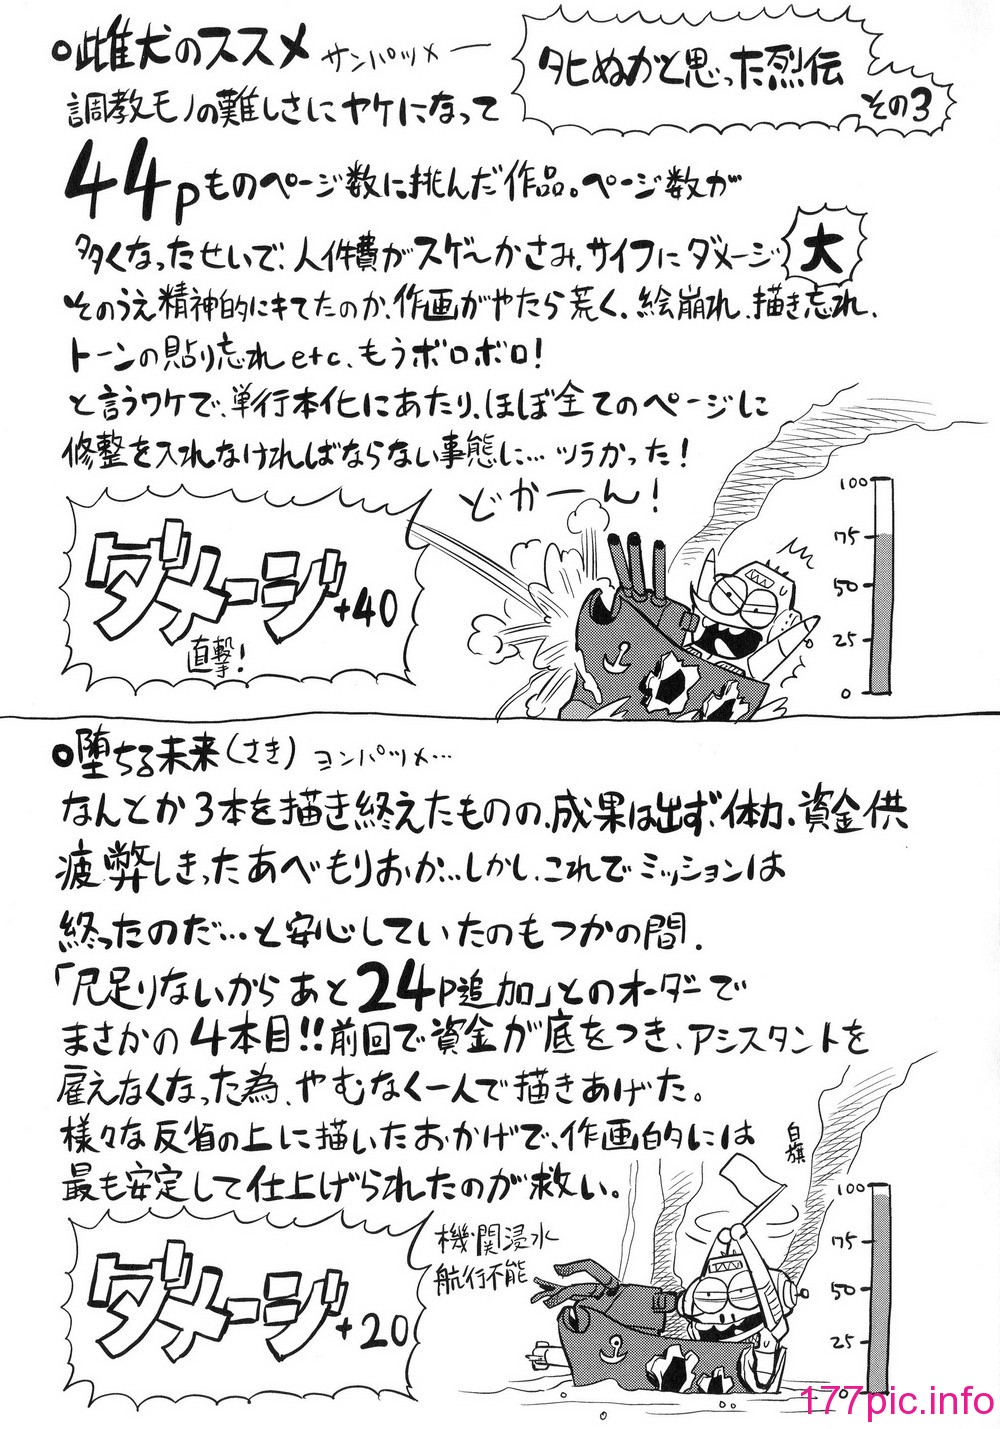 タヒぬかと思った烈伝
その3
○雌犬のススメ サンパツメー
調教モノの難しさにヤケになって
44pものページ数に挑んだ作品。ページ数が
多くなったせいで、人件費がスゲ〜かさみ、サイフにダメージ大
そのうえ精神的にキてたのか、作画がやたら荒く、絵崩れ、描き忘れ、
トーンの貼り忘れetc、もうボロボロ!
と言うワケで、単行本化にあたり、ほぼ全てのページに
修整を入れなければならない事態に…ツラかった!
どかーん!
ダメージ+40
直撃!
100
75
50
25
0
○堕ちる未来(さき) ヨンパツメ…
なんとか3本を描き終えたものの、成果は出ず、体力、資金供
疲弊しきったあべもりおか…しかし、これでミッションは
終ったのだ…と安心していたのもつかの間、
「尺足りないからあと24P追加」とのオーダーで
まさかの4本目!!前回で資金が底をつき、アシスタントを
雇えなくなった為、やむなく一人で描きあげた。
様々な反省の上に描いたおかげで、作画的には
最も安定して仕上げられたのが救い。
白旗
機関浸水
航行不能
ダメージ+20
100
75
50
25
0
177pic.info